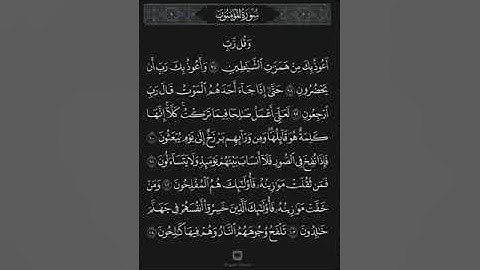 سُورَةُ المُؤْمِنُونَ
وَقُل رَّبِّ
أَعُوذُ بِكَ مِنْ هَمَزَاتِ الشَّيَاطِينِ ۝٩٧ وَأَعُوذُ بِكَ رَبِّ أَن
يَحْضُرُونِ ۝٩٨ حَتَّىٰ إِذَا جَاءَ أَحَدَهُمُ الْمَوْتُ قَالَ رَبِّ
ارْجِعُونِ ۝٩٩ لَعَلِّي أَعْمَلُ صَالِحًا فِيمَا تَرَكْتُ ۚ كَلَّا ۚ إِنَّهَا
كَلِمَةٌ هُوَ قَائِلُهَا ۖ وَمِن وَرَائِهِم بَرْزَخٌ إِلَىٰ يَوْمِ يُبْعَثُونَ ۝١٠٠
فَإِذَا نُفِخَ فِي الصُّورِ فَلَا أَنسَابَ بَيْنَهُمْ يَوْمَئِذٍ وَلَا يَتَسَاءَلُونَ ۝١٠١
فَمَن ثَقُلَتْ مَوَازِينُهُ فَأُولَٰئِكَ هُمُ الْمُفْلِحُونَ ۝١٠٢ وَمَنْ
خَفَّتْ مَوَازِينُهُ فَأُولَٰئِكَ الَّذِينَ خَسِرُوا أَنفُسَهُمْ فِي جَهَنَّمَ
خَالِدُونَ ۝١٠٣ تَلْفَحُ وُجُوهَهُمُ النَّارُ وَهُمْ فِيهَا كَالِحُونَ ۝١٠٤